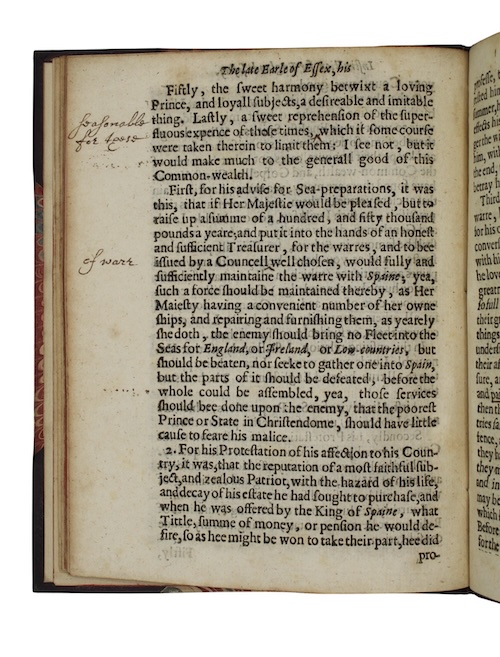 The late Earle of Essex, his
Fiftly, the sweet harmony betwixt a loving
Prince, and loyall subjects, a desireable and imitable
thing. Lastly, a sweet reprehension of the super-
fluous expence of those times, which it some course
were taken therein to limit them: I see not, but it
would make much to the generall good of this
Common-wealth.
seasonable
for these
First, for his advise for Sea-preparations, it was
this, that if Her Majestie would be pleased, but to
raise up a summe of a hundred, and fifty thousand
pounds a yeare, and put it into the hands of an honest
and sufficient Treasurer, for the warres, and to bee
issued by a Councell well chosen, would fully and
of warr
sufficiently maintaine the warre with Spaine, yea,
such a force should be maintained thereby, as Her
Maiesty having a convenient number of her owne
ships, and repairing and furnishing them, as yearely
she doth, the enemy should bring no Fleet into the
Seas for England, or Ireland, or Low-countries, but
should be beaten, nor seeke to gather one into Spain,
but the parts of it should be defeated, before the
whole could be assembled, yea, those services
should bee done upon the enemy, that the poorest
Prince or State in Christendome, should have little
cause to feare his malice.
2. For his Protestation of his affection to his Coun-
try, it was, that the reputation of a most faithful sub-
ject, and zealous Patriot, with the hazard of his life,
and decay of his estate he had sought to purchase, and
when he was offered by the King of Spaine, what
Tittle, summe of money, or pension he would de-
sire, so as hee might be won to take their part, hee did
pro-